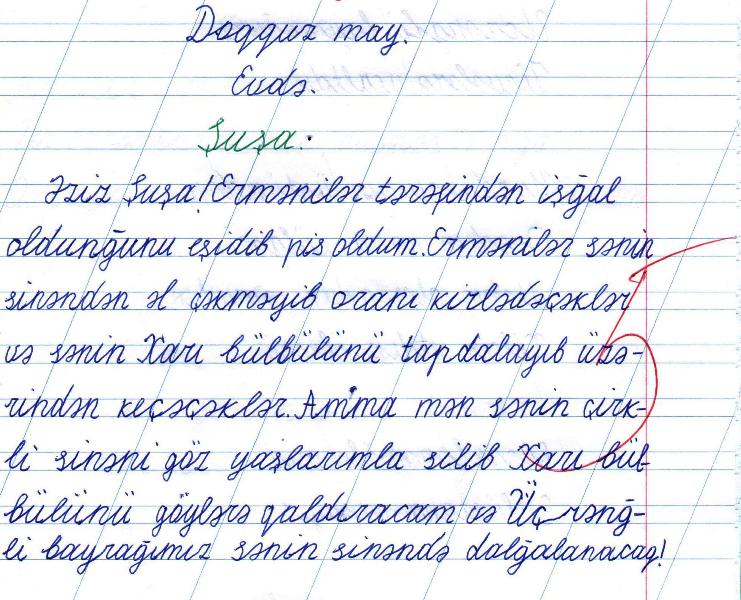 Doqquz may.
Evdə.
Şuşa.
Əziz Şuşa! Ermənilər tərəfindən işğal
oldunğunu eşidib pis oldum. Ermənilər sənin
sinəndən əl çəkməyib oranı kirlədəçəklər
və sənin Xarı bülbülünü tapdalayıb üzə-
rindən keçəçəklər. Amma mən sənin çirk-
li sinəni göz yaşlarımla silib Xarı bül-
bülünü göylərə qaldıracam və Üç rənğ-
li bayrağımız sənin sinəndə dalğalanacaq!